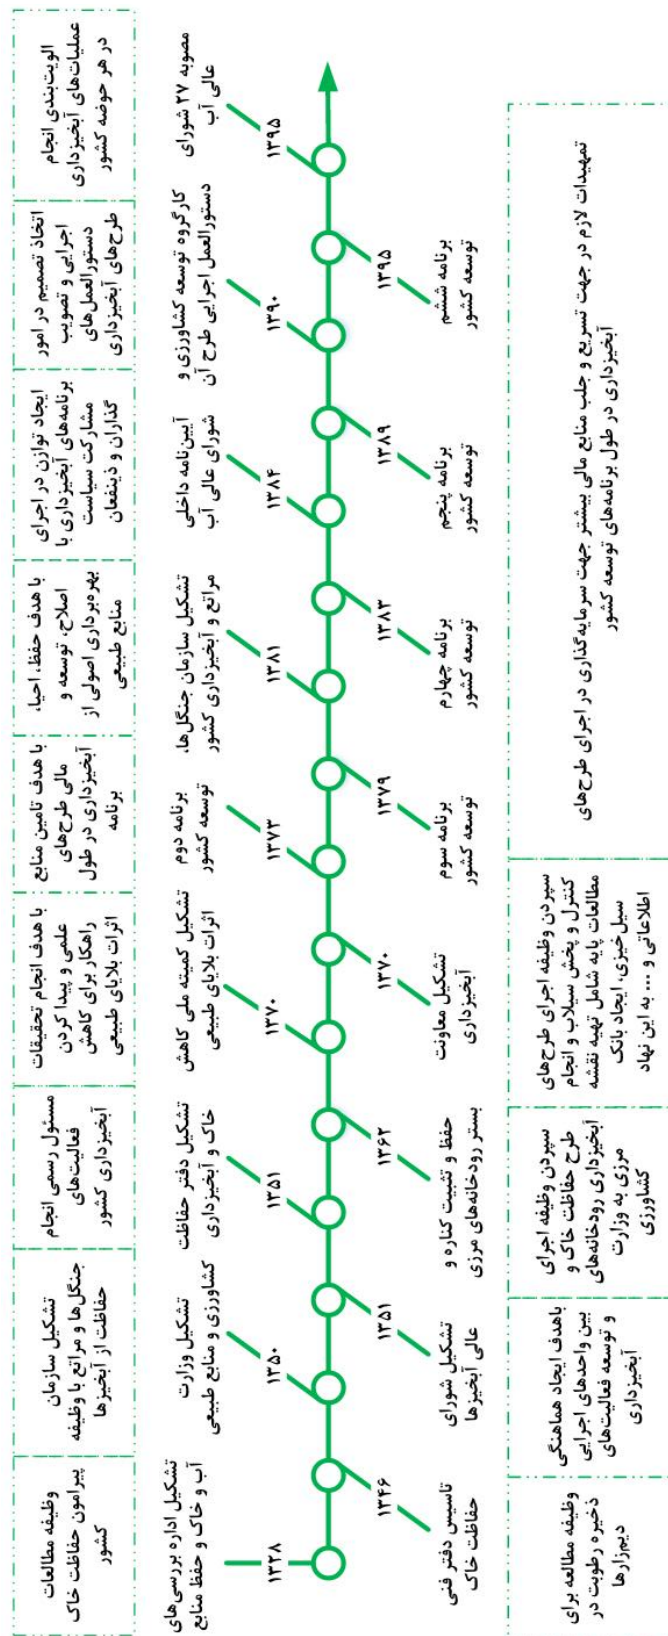 وظیفه مطالعات
پیرامون حفاظت خاک
کشور
تشکیل سازمان
جنگل‌ها و مراتع با وظیفه
حفاظت از آبخیزها
مسئول رسمی انجام
فعالیت‌های
آبخیزداری کشور
با هدف انجام تحقیقات
علمی و پیدا کردن
راهکار برای کاهش
اثرات بلایای طبیعی
با هدف تامین منابع
مالی طرح‌های
آبخیزداری در طول
برنامه
با هدف حفظ، احیا،
اصلاح، توسعه و
بهره‌برداری اصولی از
منابع طبیعی
ایجاد توازن در اجرای
برنامه‌های آبخیزداری با
مشارکت سیاست
گذاران و ذینفعان
اتخاذ تصمیم در امور
اجرایی و تصویب
دستورالعمل‌های
طرح‌های آبخیزداری
الویت‌بندی انجام
عملیات‌های آبخیزداری
در هر حوضه کشور
تشکیل اداره بررسی‌های
آب و خاک و حفظ منابع
۱۳۲۸
تشکیل وزارت
کشاورزی و منابع طبیعی
۱۳۵۰
تشکیل دفتر حفاظت
خاک و آبخیزداری
۱۳۵۱
تشکیل کمیته ملی کاهش
اثرات بلایای طبیعی
۱۳۷۰
برنامه دوم
توسعه کشور
۱۳۷۳
تشکیل سازمان جنگل‌ها،
مراتع و آبخیزداری کشور
۱۳۸۱
آیین‌نامه داخلی
شورای عالی آب
۱۳۸۴
کارگروه توسعه کشاورزی و
دستورالعمل اجرایی طرح آن
۱۳۹۰
مصوبه ۲۷ شورای
عالی آب
۱۳۹۵
۱۳۴۶
تاسیس دفتر فنی
حفاظت خاک
۱۳۵۱
تشکیل شورای
عالی آبخیزها
۱۳۶۲
حفظ و تثبیت کناره و
بستر رودخانه‌های مرزی
۱۳۷۰
تشکیل معاونت
آبخیزداری
۱۳۷۹
برنامه سوم
توسعه کشور
۱۳۸۳
برنامه چهارم
توسعه کشور
۱۳۸۹
برنامه پنجم
توسعه کشور
۱۳۹۵
برنامه ششم
توسعه کشور
وظیفه مطالعه برای
ذخیره رطوبت در
دیم‌زارها
باهدف ایجاد هماهنگی
بین واحدهای اجرایی
و توسعه فعالیت‌های
آبخیزداری
سپردن وظیفه اجرای
طرح حفاظت خاک و
آبخیزداری رودخانه‌های
مرزی به وزارت
کشاورزی
سپردن وظیفه اجرای طرح‌های
کنترل و پخش سیلاب و انجام
مطالعات پایه شامل تهیه نقشه
سیل‌خیزی، ایجاد بانک
اطلاعاتی و ... به این نهاد
تمهیدات لازم در جهت تسریع و جلب منابع مالی بیشتر جهت سرمایه‌گذاری در اجرای طرح‌های
آبخیزداری در طول برنامه‌های توسعه کشور